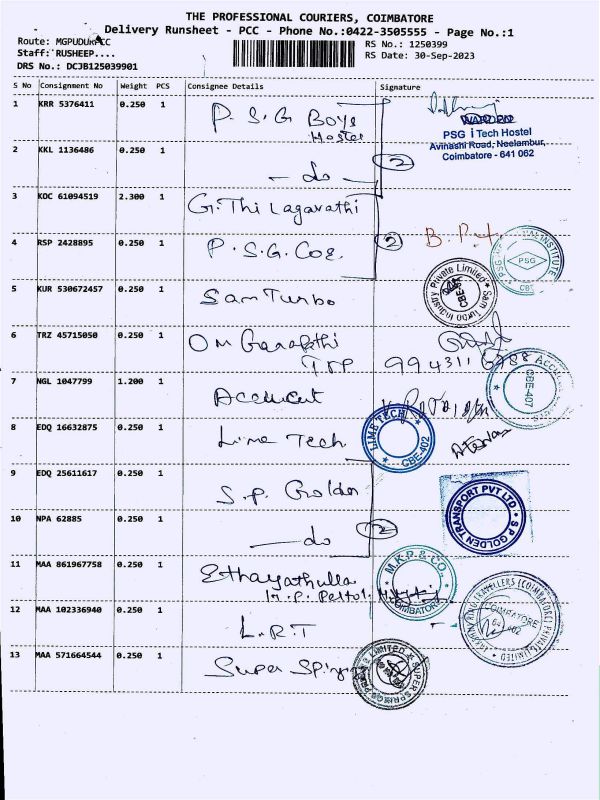 THE PROFESSIONAL COURIERS, COIMBATORE
Delivery Runsheet - PCC - Phone No.:0422-3505555 - Page No.:1
Route: MGPUDUR PCC
RS No.: 1250399
Staff: RUSHEEP....
RS Date: 30-Sep-2023
DRS No.: DCJB125039901
S No Consignment No Weight PCS Consignee Details Signature
1 KRR 5376411 0.250 1 P.S.G Boys
Hostel
PSG iTech Hostel
Avinashi Road, Neelambur,
Coimbatore - 641 062
2 KKL 1136486 0.250 1 - do - 2
3 KOC 61094519 2.300 1 G.Thilagavathi
4 RSP 2428895 0.250 1 P.S.G. COE. 2
PSG
5 KUR 530672457 0.250 1 Sam Turbo
Sam Turbo Industry Private Limited
6 TRZ 45715050 0.250 1 Om Ganapathi
7 NGL 1047799 1.200 1
CBE-407
8 EDQ 16632875 0.250 1 Lime Tech
LIME TECH CBE-402
9 EDQ 25611617 0.250 1 S.P. Golden
S P GOLDEN TRANSPORT PVT LTD
10 NPA 62885 0.250 1 - do 2
11 MAA 861967758 0.250 1 Ethayathulla
M.K.P. & CO., COIMBATORE
12 MAA 102336940 0.250 1 L.R.T
COIMBATORE
13 MAA 571664544 0.250 1 Super Spining